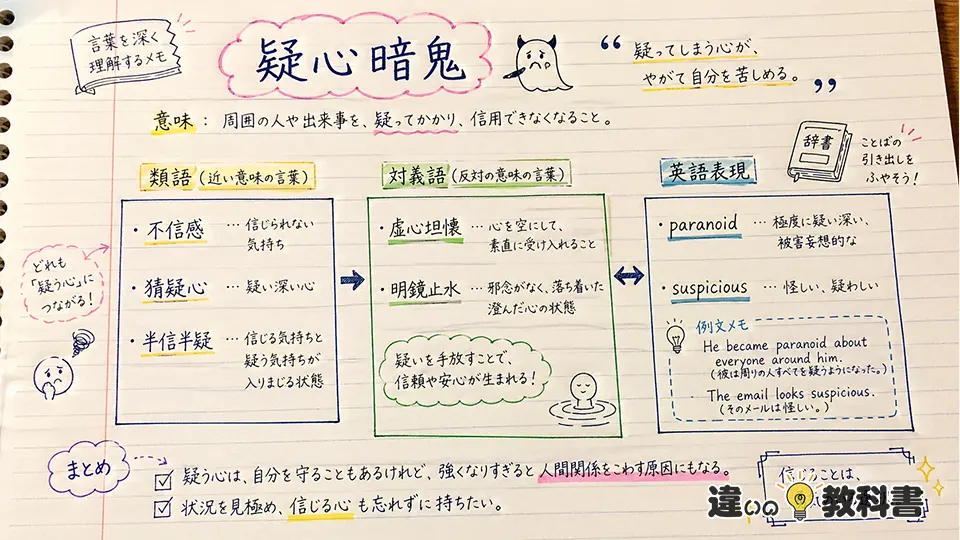 言葉を深く
理解するメモ
疑心暗鬼
“疑ってしまう心が、
やがて自分を苦しめる。”
意味 : 周囲の人や出来事を、疑ってかかり、信用できなくなること。
辞書
ことばの
引き出しを
ふやそう!
類語(近い意味の言葉)
・不信感 … 信じられない
気持ち
・猜疑心 … 疑い深い心
・半信半疑 … 信じる気持ちと
疑う気持ちが
入りまじる状態
どれも
「疑う心」に
つながる!
対義語(反対の意味の言葉)
・虚心坦懐 … 心を空にして、
素直に受け入れること
・明鏡止水 … 邪念がなく、落ち着いた
澄んだ心の状態
疑いを手放すことで、
信頼や安心が生まれる!
英語表現
・paranoid … 極度に疑い深い、
被害妄想的な
・suspicious … 怪しい、疑わしい
例文メモ
He became paranoid about
everyone around him.
(彼は周りの人すべてを疑うようになった。)
The email looks suspicious.
(そのメールは怪しい。)
まとめ
疑う心は、自分を守ることもあるけれど、強くなりすぎると人間関係をこわす原因にもなる。
状況を見極め、信じる心も忘れずに持ちたい。
信じることは、
違いの教科書